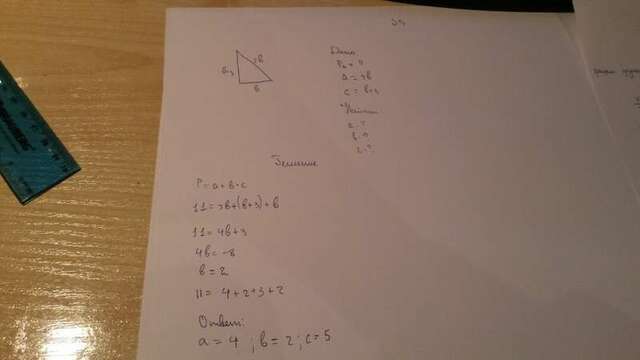 Дано
P = 11
a = 2b
c = b+3
Найти
a - ?
b - ?
c - ?
Решение
P = a+b+c
11 = 2b+(b+3)+b
11 = 4b+3
4b = -8
b = 2
11 = 4+2+3+2
Ответ:
a = 4 ; b = 2 ; c = 5